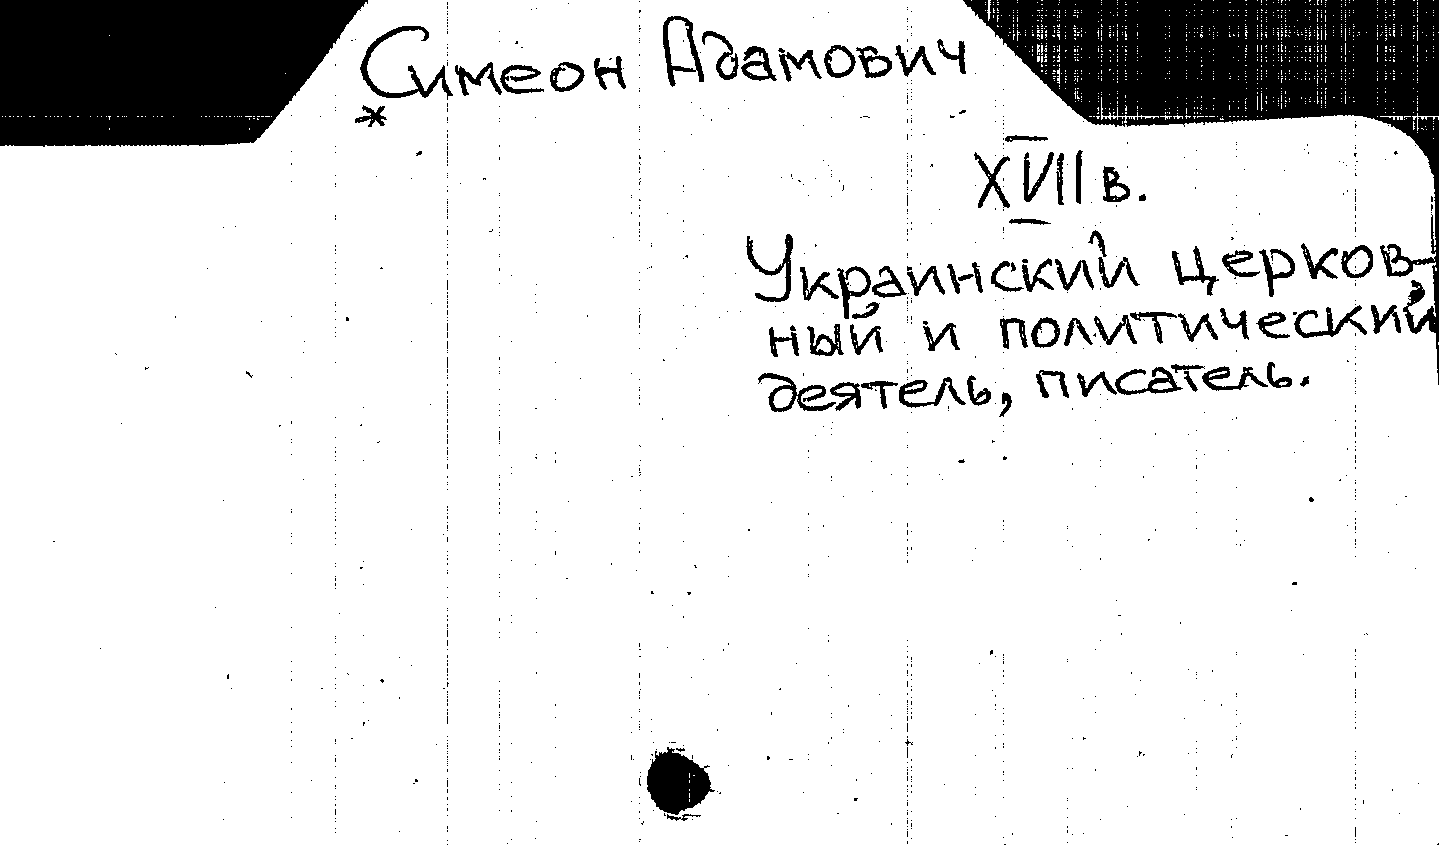 Симеон Адамович
*
XVII в.
Украинский церков-
ный и политический
деятель, писатель.